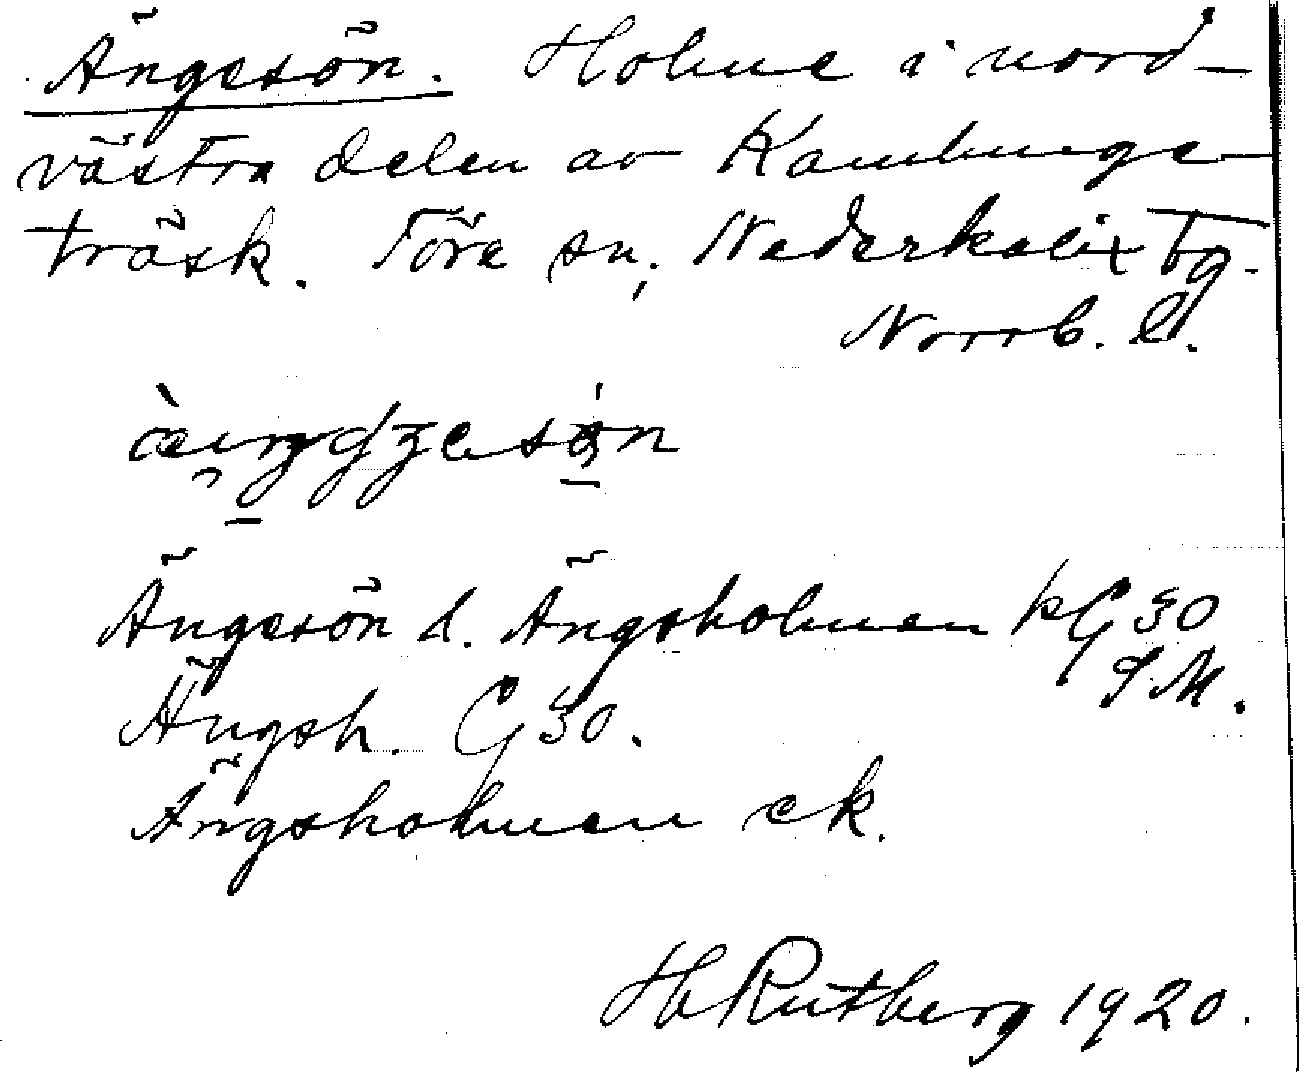 Ängesön. Holme i nord-
västra delen av Kamlunge-
träsk. Töre sn, Nederkalix tg.
Norrb. l.
Ängesön l. Ängsholmen kG 30
S.M.
Ängsh. G 30.
Ängsholmen ek.
Hb Rutberg 1920.